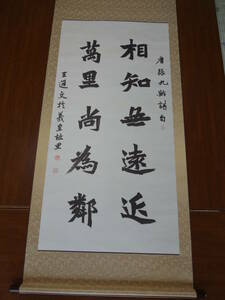 唐張九齡詩句
相知無遠近
萬里尚為鄰
王運文於義皇故里